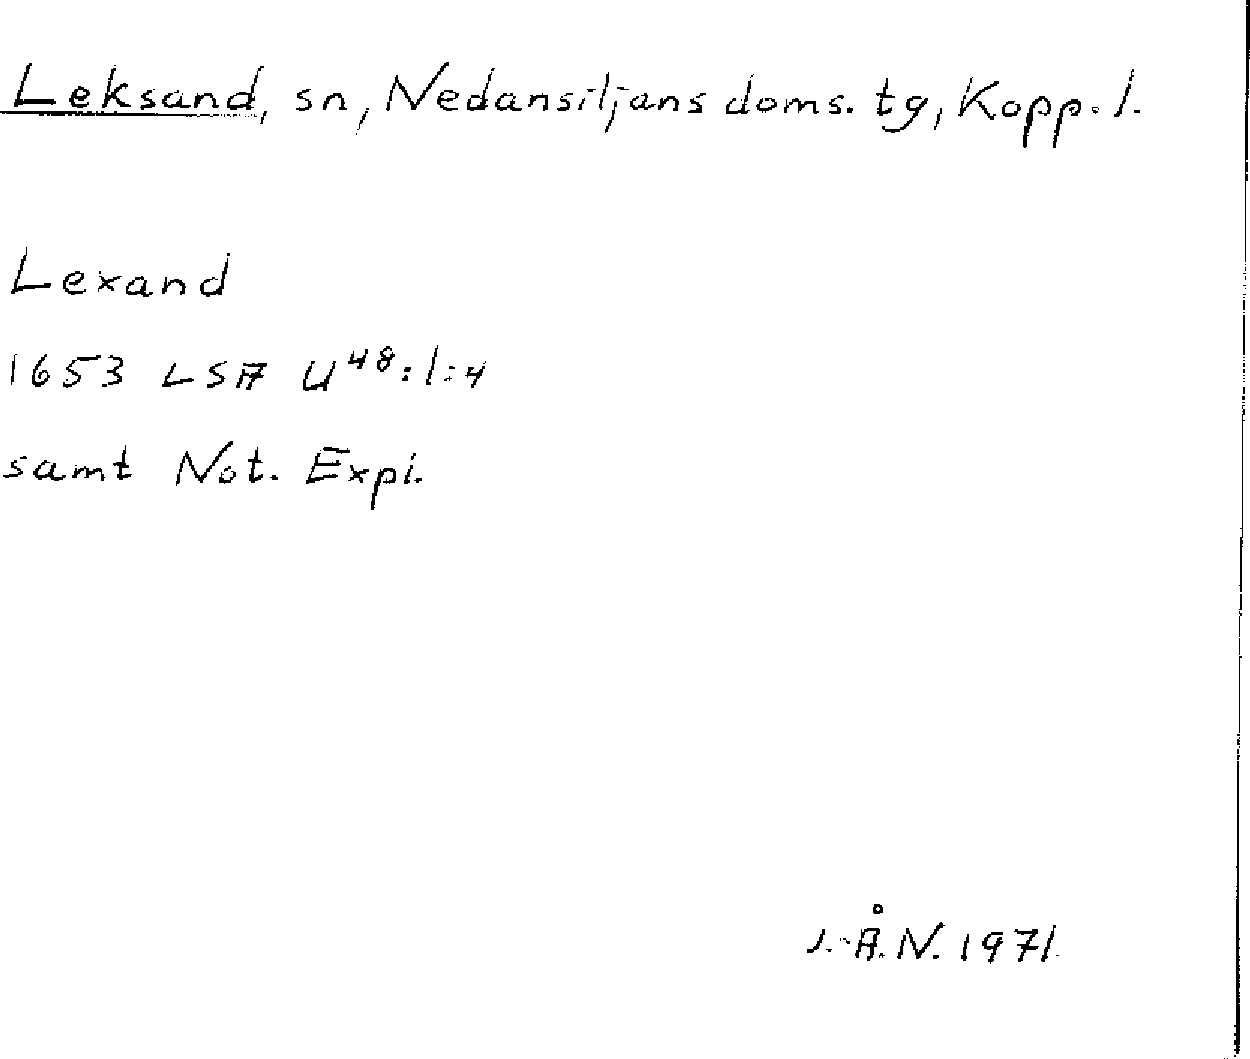 Leksand, sn, Nedansiljans doms. tg, Kopp. l.
Lexand
1653 LSA U⁴⁸:1:4
samt Not. Expl.
J.-Å.N. 1971